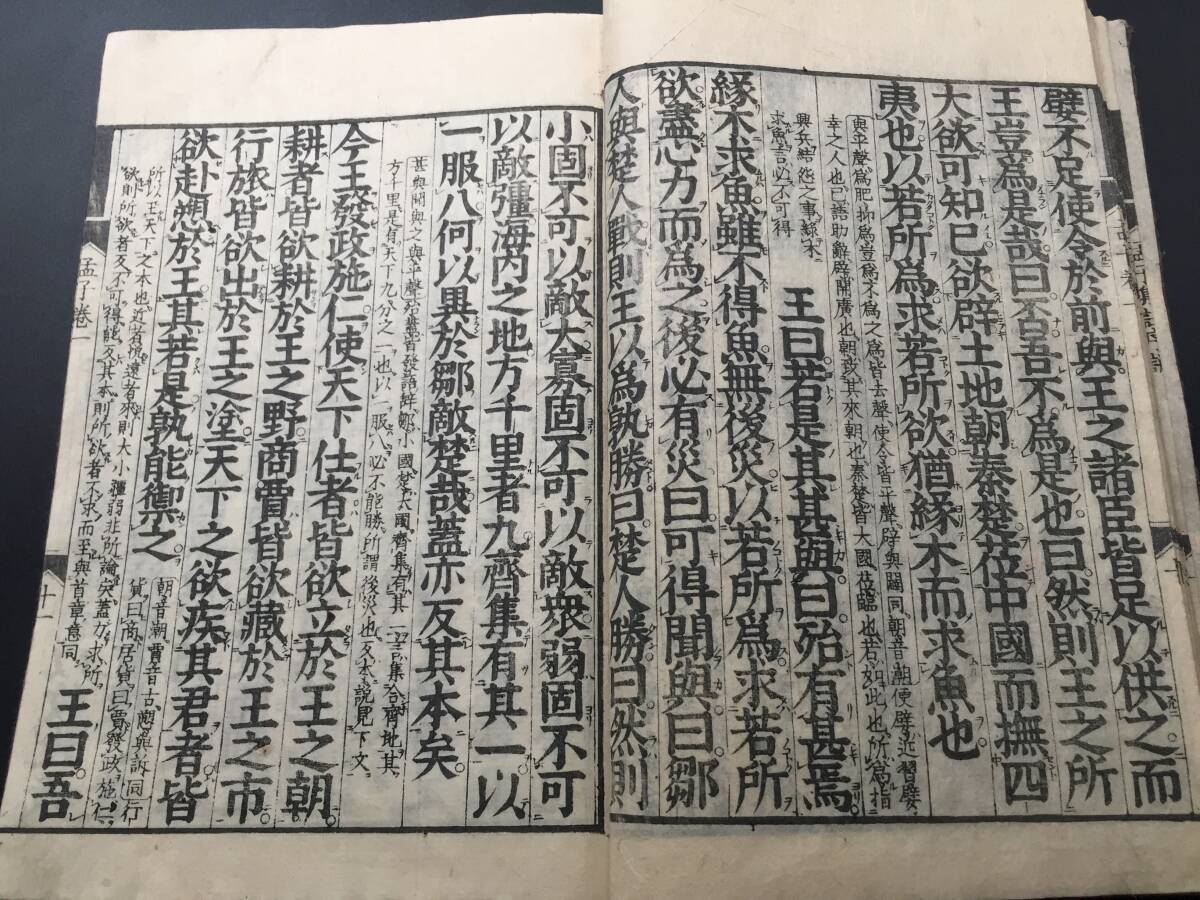 嬖不足使令於前與王之諸臣皆足以供之而
王豈爲是哉曰否吾不爲是也曰然則王之所
大欲可知已欲辟土地朝秦楚莅中國而撫四
夷也以若所爲求若所欲猶緣木而求魚也
與平聲爲肥抑爲豈爲不爲之爲皆去聲使令皆平聲辟與闢同朝音潮便嬖近習嬖
幸之人也已語助辭辟開廣也朝致其來朝也秦楚皆大國莅臨也若如此也所爲指
興兵結怨之事緣木
求魚言必不可得
王曰若是其甚與曰殆有甚焉
緣木求魚雖不得魚無後災以若所爲求若所
欲盡心力而爲之後必有災曰可得聞與曰鄒
人與楚人戰則王以爲孰勝曰楚人勝曰然則
小固不可以敵大寡固不可以敵衆弱固不可
以敵彊海內之地方千里者九齊集有其一以
一服八何以異於鄒敵楚哉蓋亦反其本矣
甚與聞與之與平聲殆蓋皆發語辭鄒小國楚大國齊集有其一言集合齊地其
方千里是有天下九分之一也以一服八必不能勝所謂後災也反本說見下文
今王發政施仁使天下仕者皆欲立於王之朝
耕者皆欲耕於王之野商賈皆欲藏於王之市
行旅皆欲出於王之塗天下之欲疾其君者皆
欲赴愬於王其若是孰能禦之
朝音潮賈音古愬與訴同行
貨曰商居貨曰賈發政施仁
所以王天下之本也近者悅遠者來則大小彊弱非所論矣蓋力求所
欲則所欲者反不可得能反其本則所欲者不求而至與首章意同
王曰吾
孟子卷一
十一